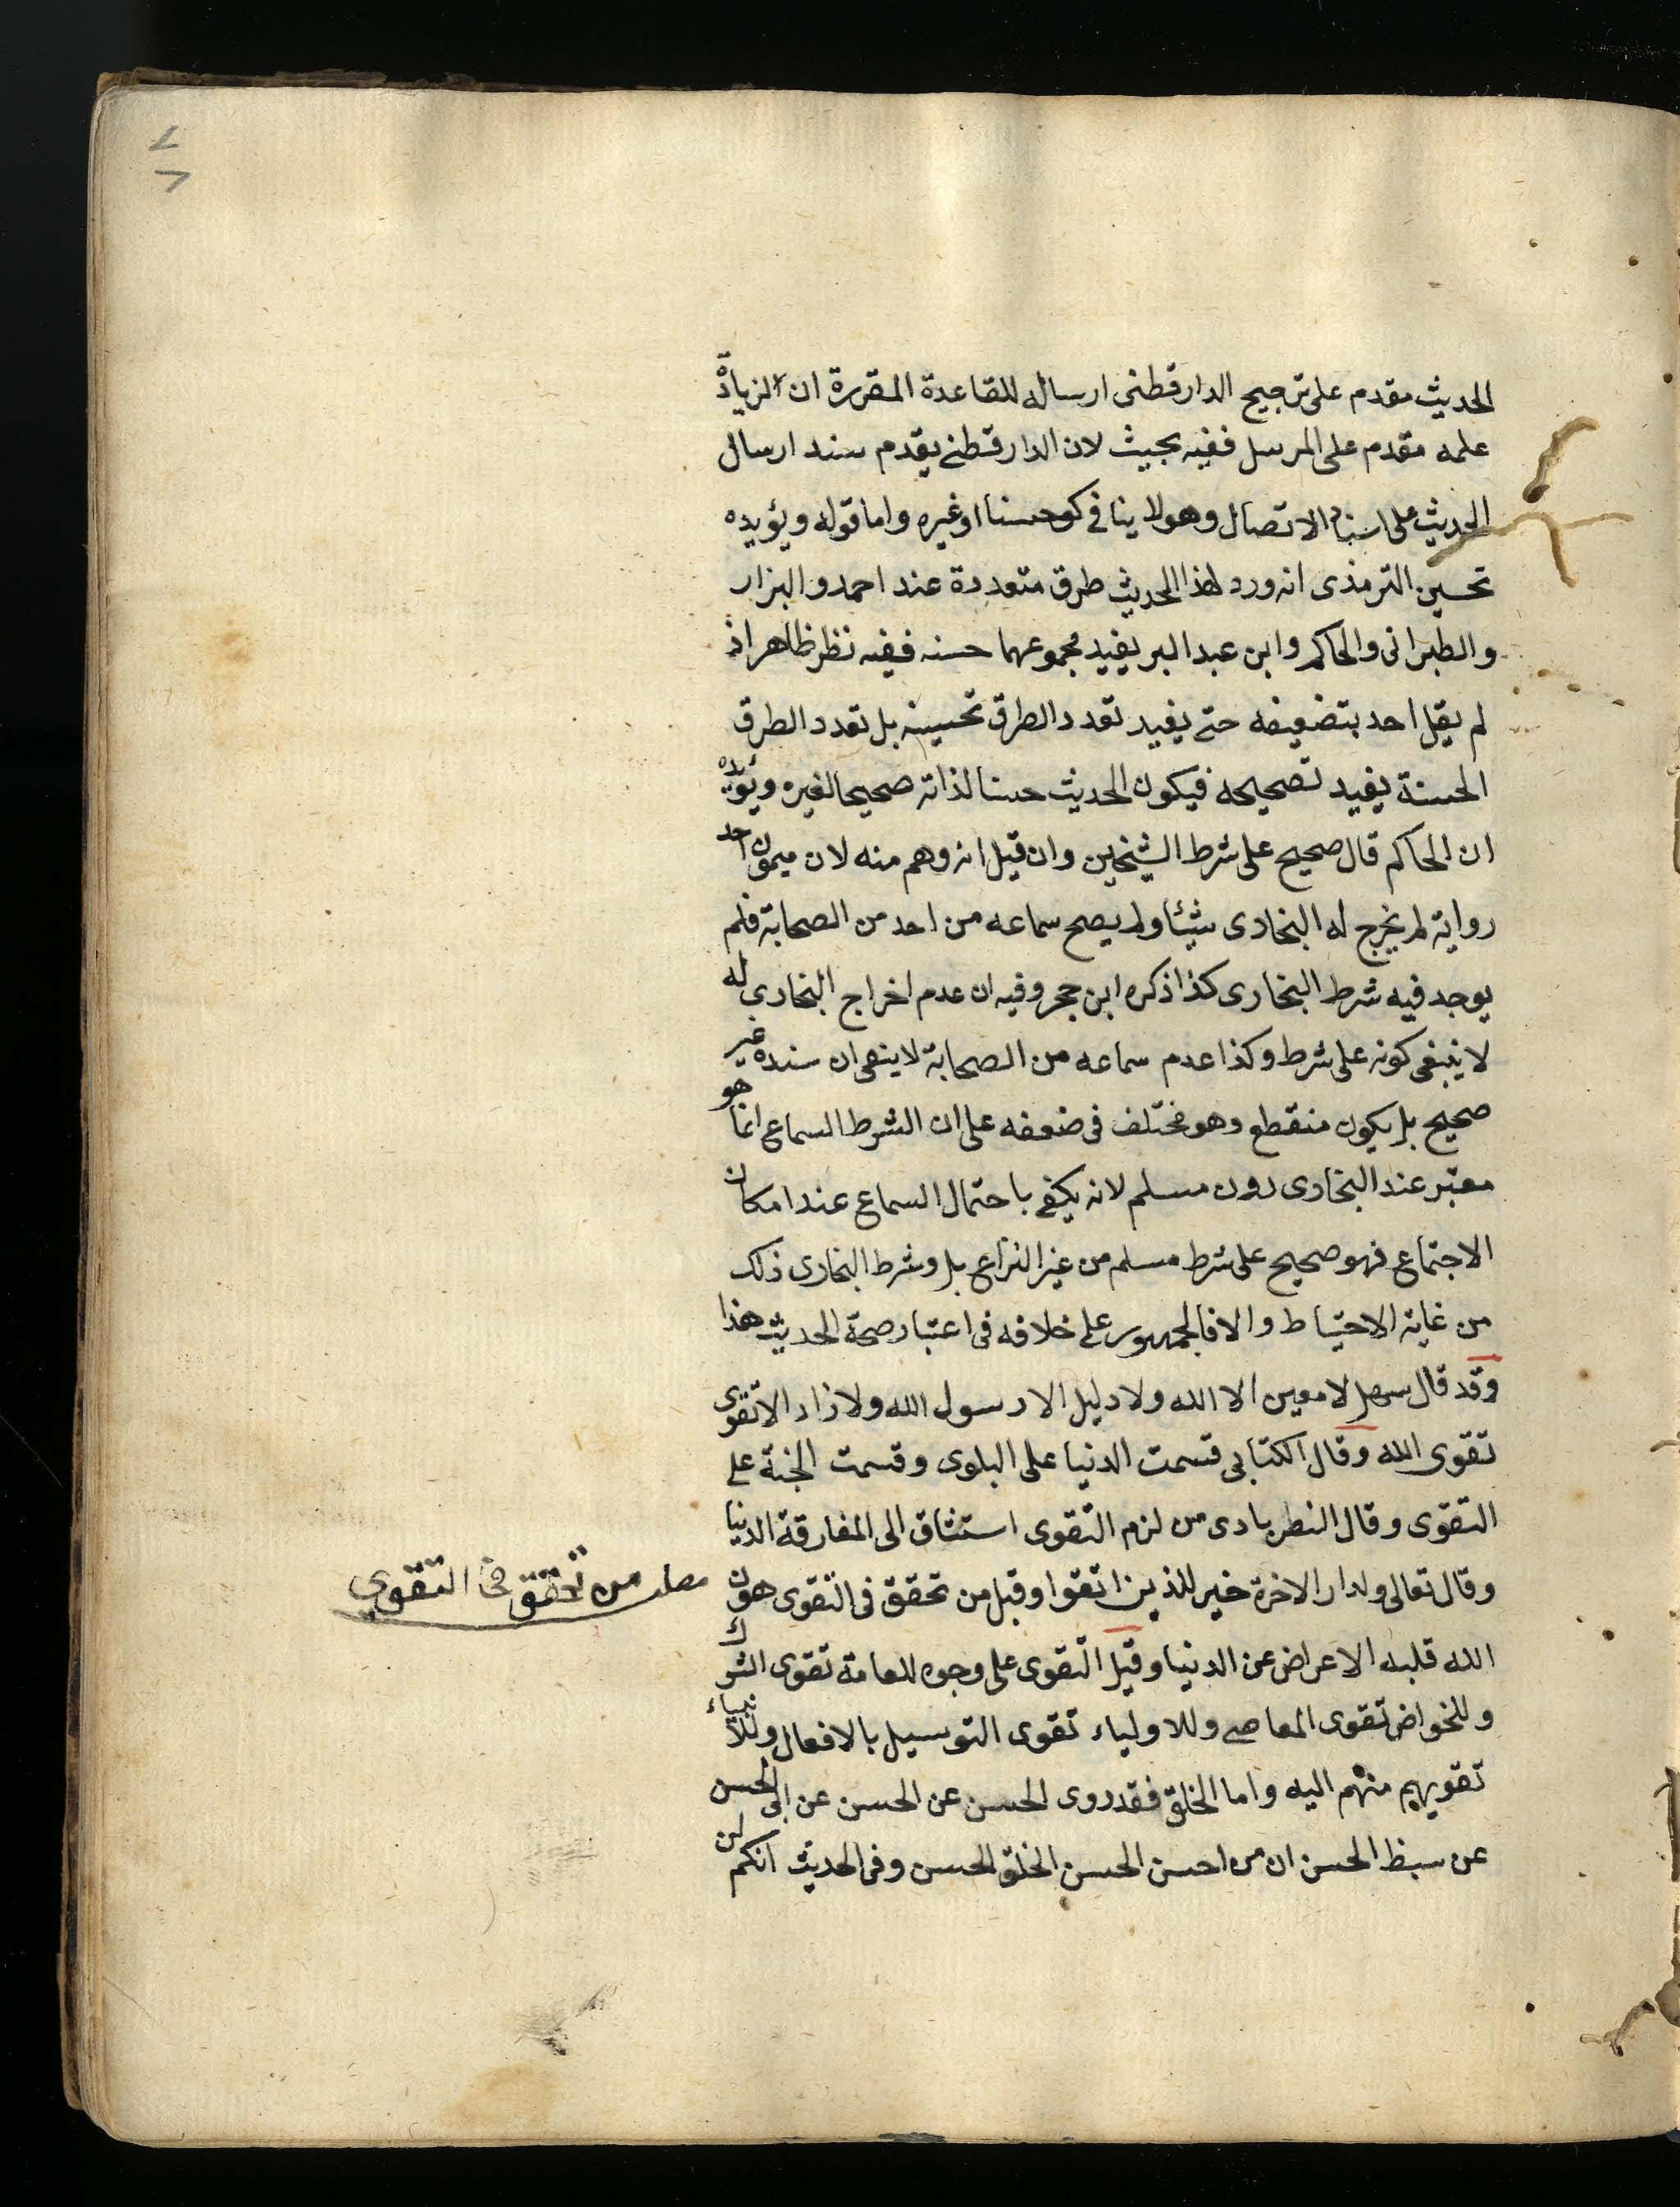 الحديث مقدم على ترجيح الدارقطنى ارساله للقاعدة المقررة ان الزيادة
علمه مقدم على المرسل ففيه بحيث لان الدارقطنى يقدم سند ارسال
الحديث على اسناد الاتصال وهو لا ينافى كونه حسنا او غيره واما قوله ويؤيده
تحسين الترمذى انه ورد لهذا الحديث طرق متعددة عند احمد والبزار
والطبرانى والحاكم وابن عبد البر يفيد مجموعهما حسنه ففيه نظر ظاهر اذ
لم يقل احد بتضعيفه حتى يفيد تعدد الطرق تحسينه بل تعدد الطرق
الحسنة يفيد تصحيحه فيكون الحديث حسنا لذاته صحيحا لغيره ويؤيده
ان الحاكم قال صحيح على شرط الشيخين وان قيل انه وهم منه لان ميمون احد
رواية لم يخرج له البخارى شيئا ولم يصح سماعه من احد من الصحابة فلم
يوجد فيه شرط البخارى كذا ذكره ابن حجر وفيه ان عدم اخراج البخارى له
لا ينبغى كونه على شرط وكذا عدم سماعه من الصحابة لا ينعى ان سنده غير
صحيح بل يكون منقطع وهو مختلف فى ضعفه على ان الشرط السماع انما هو
معتبر عند البخارى دون مسلم لانه يكفى باحتمال السماع عند امكان
الاجتماع فهو صحيح على شرط مسلم من غير النزاع بل وشرط البخارى ذلك
من غاية الاحتياط والا فالجمهور على خلافه فى اعتبار صحة الحديث هذا
وقد قال سهل لا معين الا الله ولا دليل الا رسول الله ولا زاد الا تقوى
تقوى الله وقال الكتابى قسمت الدنيا على البلوى وقسمت الجنة على
التقوى وقال النطربادى من لزم التقوى استثاق الى المفارقة الدنيا
وقال تعالى ولدار الاخرة خير للذين اتقوا وقيل من تحقق فى التقوى هون
مطلب من تحقق فى التقوى
الله قلبه الاعراض عن الدنيا وقيل التقوى على وجوه للعامة تقوى الشرك
وللخواص تقوى المعاصى وللاولياء تقوى التوسيل بالافعال وللانبياء
تقويهم منهم اليه واما الخلق فقد روى الحسن عن الحسن عن ابى الحسن
عن سبط الحسن ان من احسن الحسن الخلق الحسن وفى الحديث انكم لن